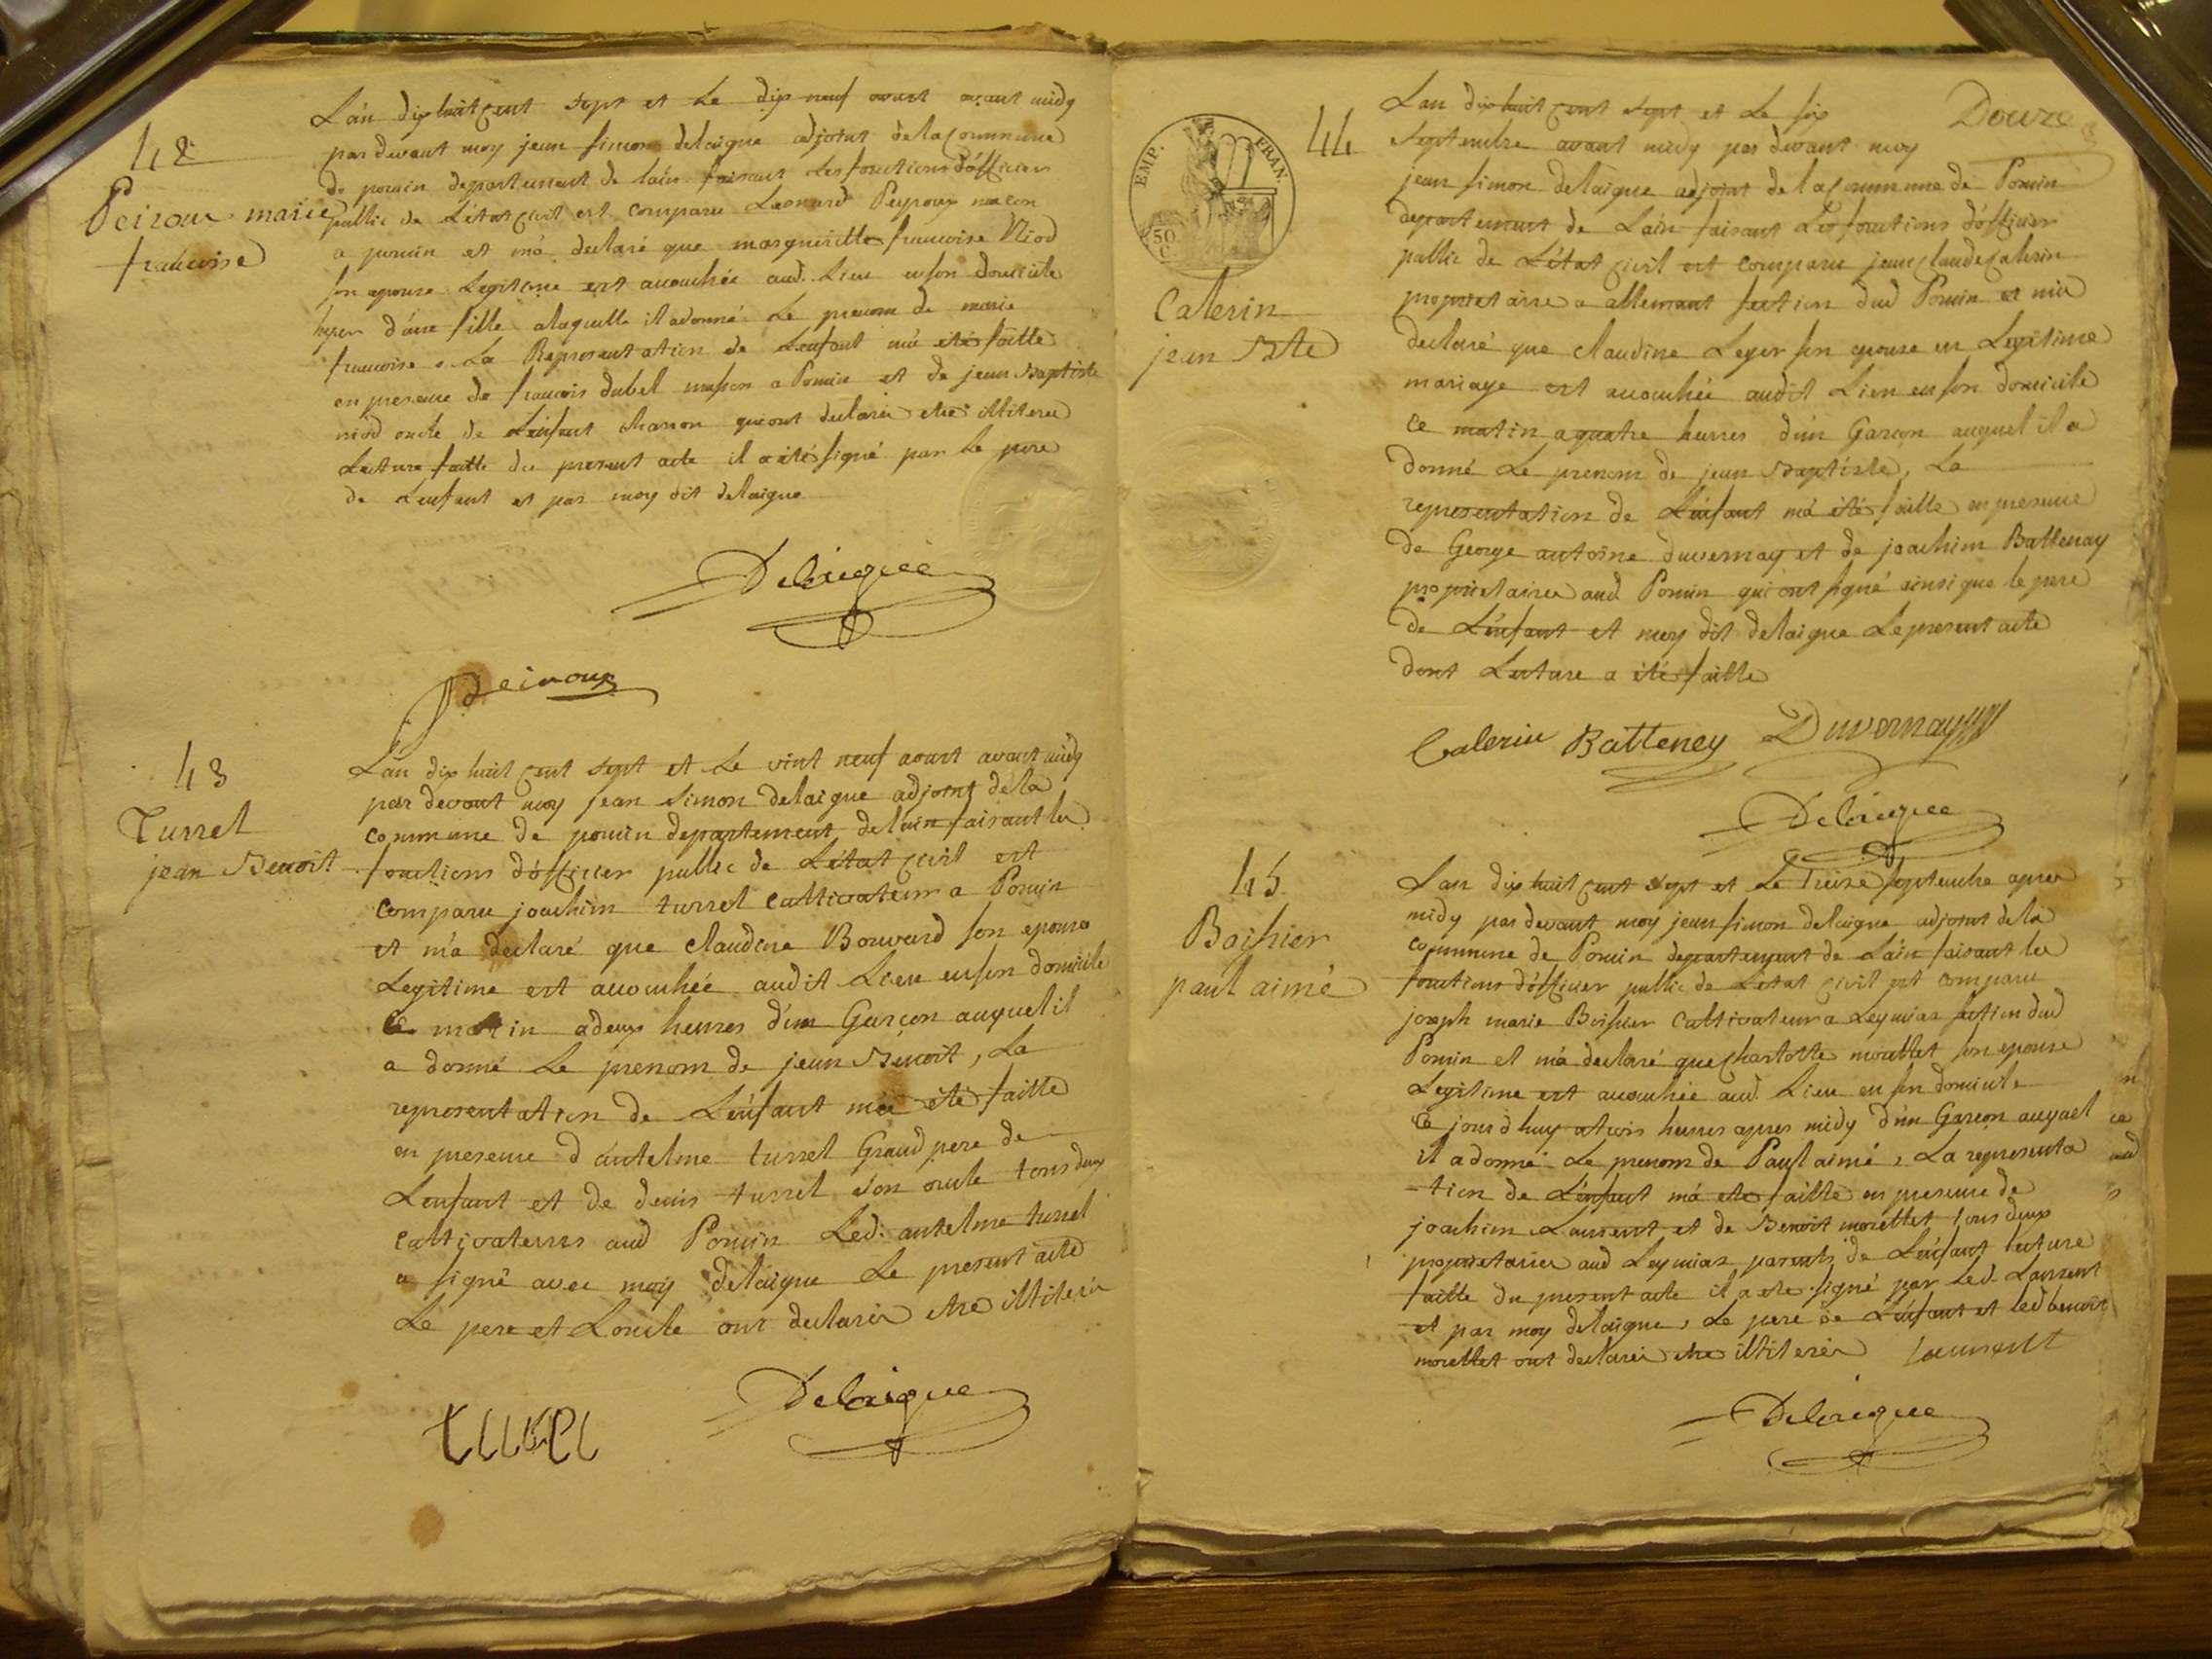 42
Peiroux marie
francoise
L'an dix huit cent sept et Le dix neuf aoust avant midy
par devant moy jean simon delaigue adjoint de la commune
de pomin departement de l'ain faisant les fonctions d'officier
public de L'état civil est comparu Leonard Peyroux macon
a pomin et m'a declaré que margueritte francoise Niod
son epouse Legitime est accouchée aud. Lieu en son domicile
hyer d'une fille alaquelle il a donné Le prenom de marie
francoise, La Representation de Lenfant m'a eté faitte
en presence de francois dubel masson a Pomin et de jean Baptiste
niod oncle de L'enfant charon qui ont declarés etre illiterés
Lecture faitte du present acte il a été signé par Le pere
de Lenfant et par moy dit delaigue
Delaigue
Peiroux
43
Turrel
jean Benoit
L'an dix huit cent sept et Le vint neuf aoust avant midy
par devant moy jean simon delaigue adjoint de la
commune de pomin departement de l'ain faisant les
fonctions d'officier public de L'état civil est
comparu joachim turrel cultivateur a Pomin
et m'a declaré que claudine Bouvard son epouse
Legitime est accouchée audit Lieu en son domicile
Ce matin a deux heures d'un Garcon auquel il
a donné Le prenom de jean Benoit, La
representation de L'enfant m'a eté faitte
en presence d'antelme turrel Grand pere de
Lenfant et de denis turrel son oncle tous deux
cultivateurs aud Pomin Led. antelme turrel
a signé avec moy delaigue Le present acte
Le pere et Loncle ont declarés etre illiterés
Delaigue
turrel
Douze
EMP. FRAN.
50
C
44
Calerin
jean Bte
L'an dix huit cent sept et Le six
septembre avant midy par devant moy
jean simon delaigue adjoint de la commune de Pomin
departement de L'ain faisant Les fonctions d'officier
public de L'état civil est comparu jean claude Calerin
proprietaire a allemant section dud Pomin et m'a
declaré que claudine Leger son epouse en Legitime
mariage est accouchée audit Lieu en son domicile
Ce matin a quatre heures d'un Garcon auquel il a
donné Le prenom de jean Baptiste, La
representation de L'enfant m'a été faitte en presence
de George antoine duvernay et de joachim Battenay
proprietaires aud Pomin qui ont signé ainsi que le pere
de L'enfant et moy dit delaigue Le present acte
dont Lecture a été faitte
Calerin Batteney Duvernay
Delaigue
45
Boissier
paul aimé
L'an dix huit cent sept et Le Treize septembre apres
midy par devant moy jean simon delaigue adjoint de la
commune de Pomin departement de L'ain faisant les
fonctions d'officier public de L'état civil est comparu
joseph marie Boissier Cultivateur a Leymias section dud
Pomin et m'a declaré que Charlotte morettet son epouse
Legitime est accouchée aud. Lieu en son domicile
Ce jourd'huy a trois heures apres midy d'un Garcon auquel
il a donné Le prenom de Paul aimé, La representa
-tion de L'enfant m'a eté faitte en presence de
joachim Laurent et de Benoit morettet tous deux
proprietaires aud Leymias parents de L'enfant lecture
faitte du present acte il a ete signé par Led. Laurent
et par moy delaigue, Le pere de L'enfant et led benoit
morettet ont declarés etre illiterés Laurent
Delaigue